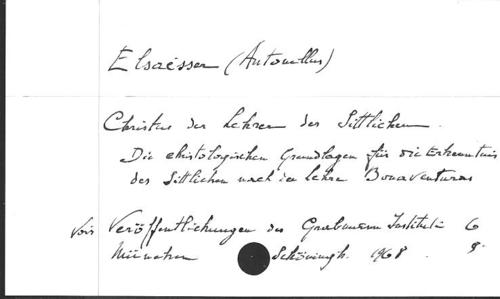 Elsässer (Antonellus)
Christus der Lehrer des Sittlichen.
Die christologischen Grundlagen für die Erkenntnis
des Sittlichen nach der Lehre Bonaventuras
Voir Veröffentlichungen des Grabmann Instituts 6
München Schöningh. 1968. 8°